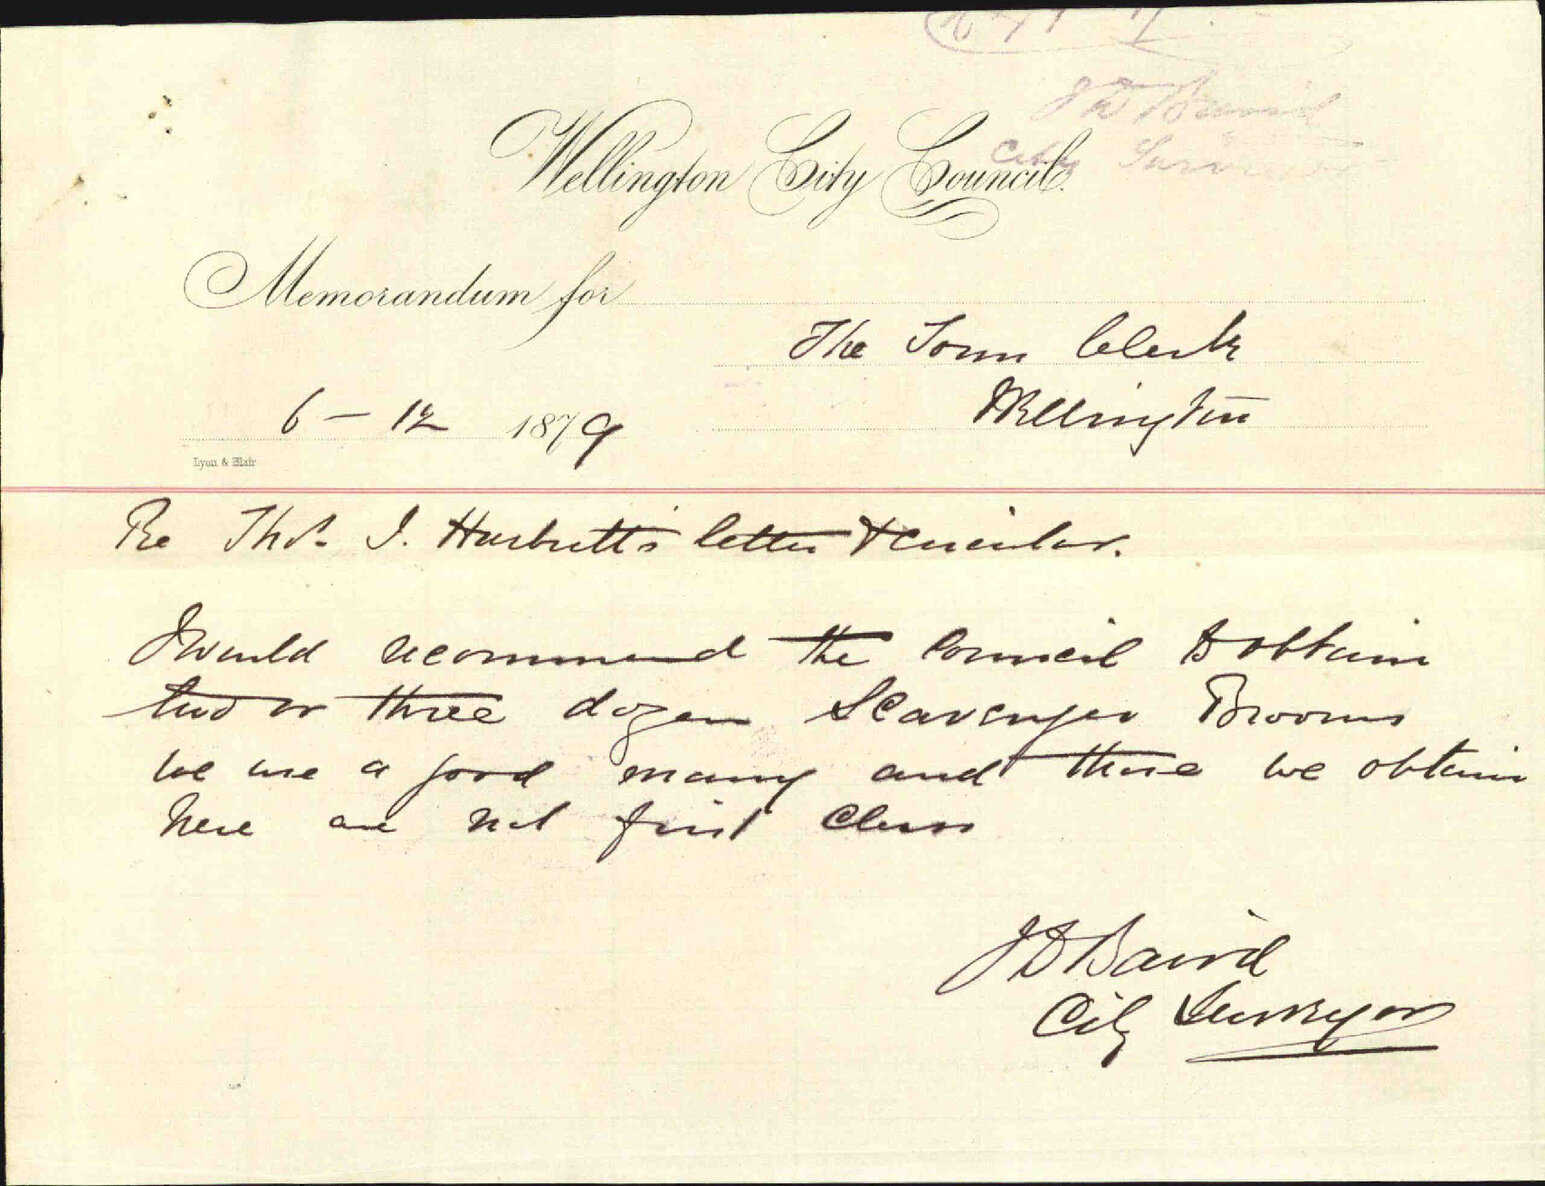 J D Baird
City Surveyor
Wellington City Council.
Memorandum for
The Town Clerk
Wellington
6 - 12 1879
Lyon & Blair
Re Thos. J. Hurbutt's letter & circular.
I would recommend the Council to obtain
two or three dozen Scavenger Brooms
we use a good many and those we obtain
here are not first Class
J D Baird
City Surveyor